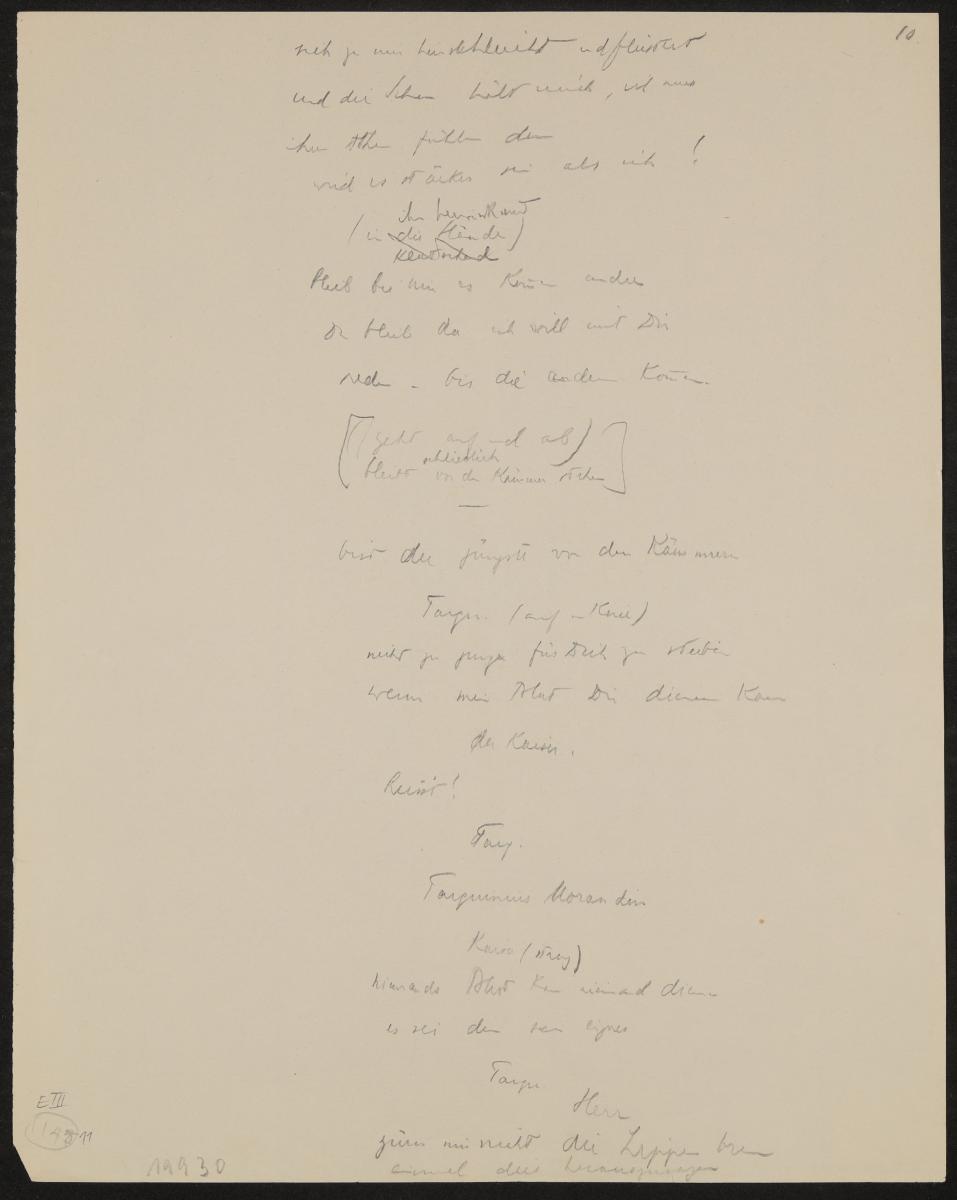 10.
sich zu mir hinschleicht und flüstert
und die hält mich, ich muss
ihren Athem fühlen denn
wird es stärker sein als ich !
ihn
(in die Hände)
bleib bis kommen andere
Du bleib da ich will mit Dir
reden – bis die andern kommen.
[(geht auf und ab)
schliesslich
bleibt vor dem Kämmerer stehen]
—
bist der jüngste von den Kämmerern
Tarqu. (auf Knie)
nicht zu jung für Dich zu sterben
wenn mein Blut Dir dienen kann
der Kaiser.
heisst!
Tarq.
Tarquinius Morandin
Kaiser (streng)
niemands Blut kann niemand dienen
es sei denn sein eignes
Tarqu.
Herr
zürn mir nicht die Lippen
einmal dies
E III
148 11
19930